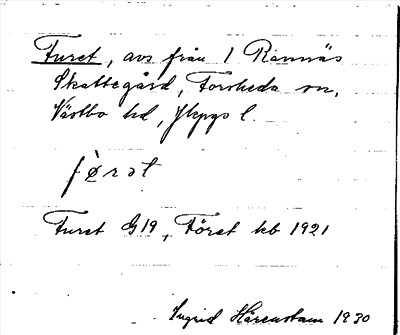 Furet, avs från 1 Rannäs
Skattegård, Forsheda sn,
Västbo hd, Jkpgs l.
fờrət
Furet G19, Föret kb 1921
Ingrid Härenstam 1930